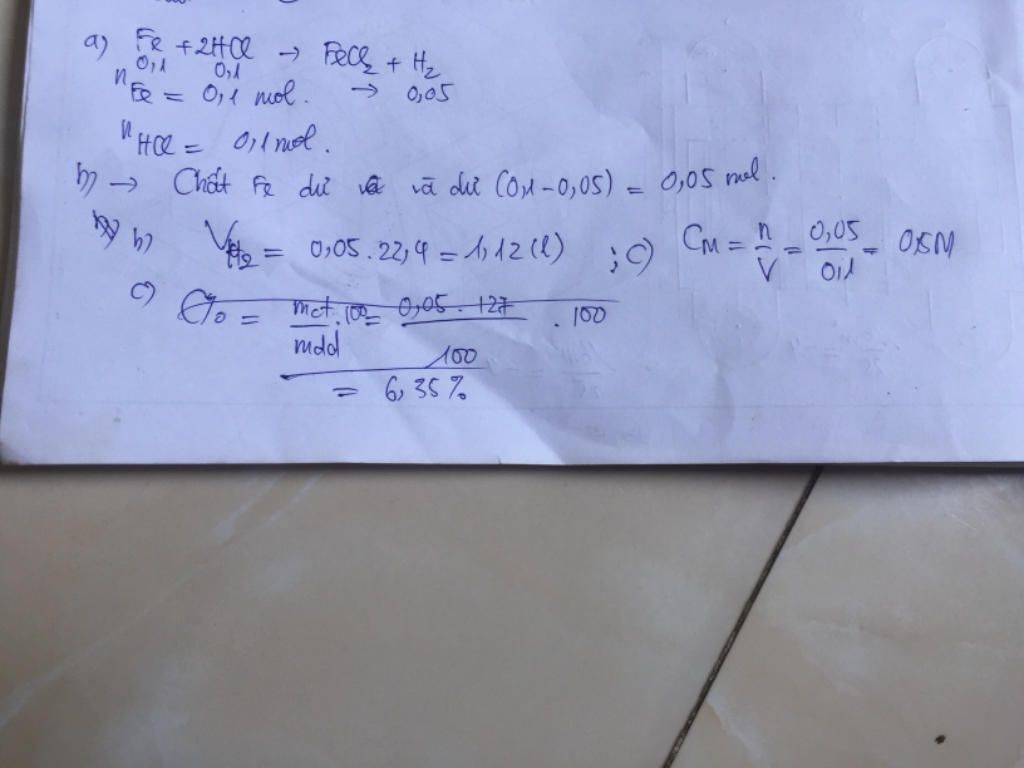 a) Fe + 2HCl → FeCl₂ + H₂
0,1 0,1
nFe = 0,1 mol. → 0,05
nHCl = 0,1 mol.
b) → Chất Fe dư và dư (0,1 - 0,05) = 0,05 mol.
b) VH₂ = 0,05 . 22,4 = 1,12 (l) ; c) CM = n/V = 0,05/0,1 = 0,5M
c) C% = mct/mdd . 100 = 0,05 . 127/100 . 100
= 6,35%